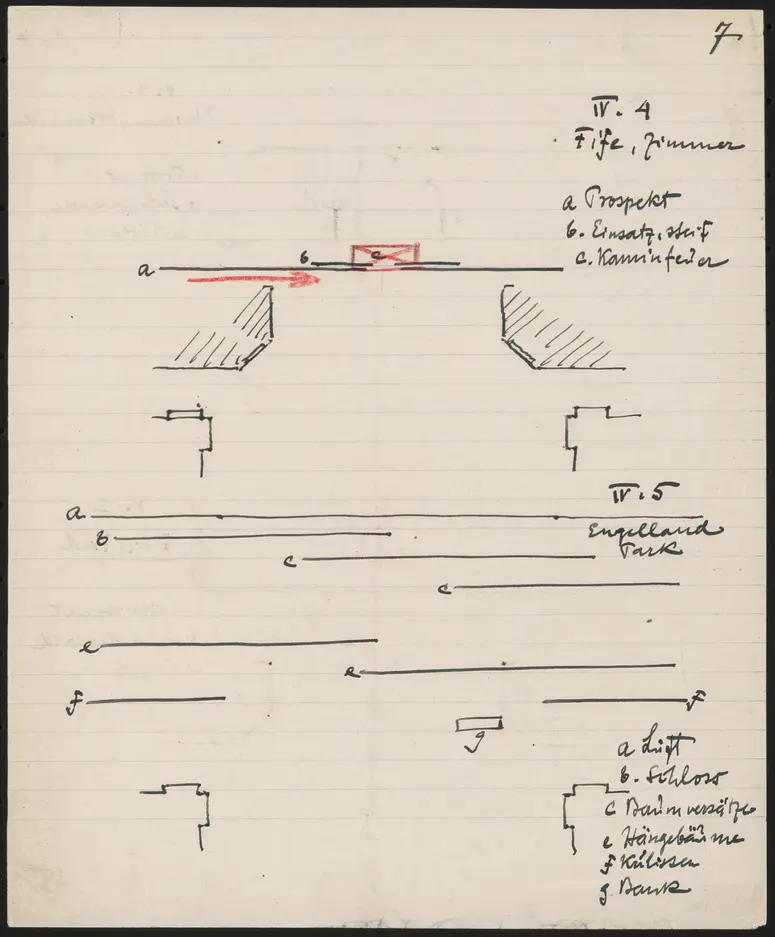 7
IV. 4
Fife, Zimmer
a Prospekt
b. Einsatz, steif
c. Kaminfeuer
b
c
a
IV. 5
Engelland
Park
a
b
c
c
e
e
f
f
g
a Luft
b. Schloss
c Baumversätze
e Hängebäume
f Kulissen
g. Bank